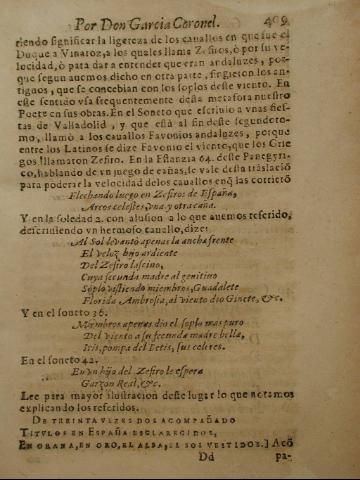 Por Don Garcia Coronel. 409.
riendo significar la ligereza de los cauallos en que fue el
Duque a Vinaroz, a los quales llama Zefiros, ò por su ve-
locidad, ò para dar a entender que eran andaluzes, por-
que segun auemos dicho en otra parte, fingieron los an-
tiguos, que se concebian con los soplos deste viento. En
este sentido vsa frequentemente desta metafora nuestro
Poeta en sus obras. En el Soneto que escriuio a vnas fies-
tas de Valladolid, y que està al fin deste segundo to-
mo, llamò a los cauallos Fauonios andaluzes, porque
entre los Latinos se dize Fauonio el viento, que los Grie
gos llamaron Zefiro. En la Estanzia 64. deste Panegyri-
co, hablando de vn juego de cañas, se vale desta traslaciō
para poderar la velocidad de los cauallos en q̃ las corriero
Flechando luego en Zefiros de España,
Arcos celestes, vna y otra caña.
Y en la soledad 2. con alusion a lo que auemos referido,
descriuiendo vn hermoso cauallo, dize:
Al Sol leuantò apenas la ancha frente
El veloz hijo ardiente
Del Zefiro lasciuo,
Cuya fecunda madre al genitiuo
Soplo vistiendo miembros, Guadalete
Florida Ambrosia, al viento dio Ginete, &c.
Y en el soneto 36.
Miembros apenas dio el soplo mas puro
Del viento a su fecunda madre bella,
Iris, pompa del Betis, sus colores.
En el soneto 42.
En vn hijo del Zefiro le espera
Garzon Real, &c.
Lee para mayor ilustracion deste lugar lo que notamos
explicando los referidos.
DE TREINTA VEZES DOS ACOMPAÑADO
TITVLOS EN ESPAÑA ESCLARECIDOS,
EN GRANA, EN ORO, EL ALBA, EL SOL VESTIDOS.] Acō
Dd pa-